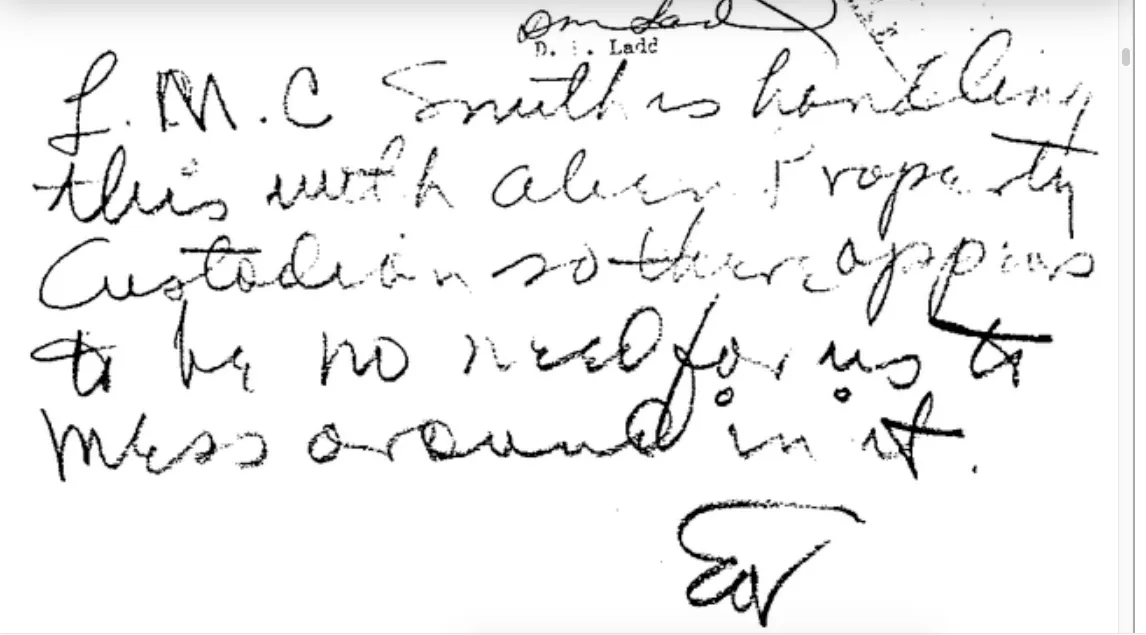 D. . Ladd
L. M. C Smith is handling
this with Alien Property
Custodian so there appears
to be no need for us to
mess around in it.